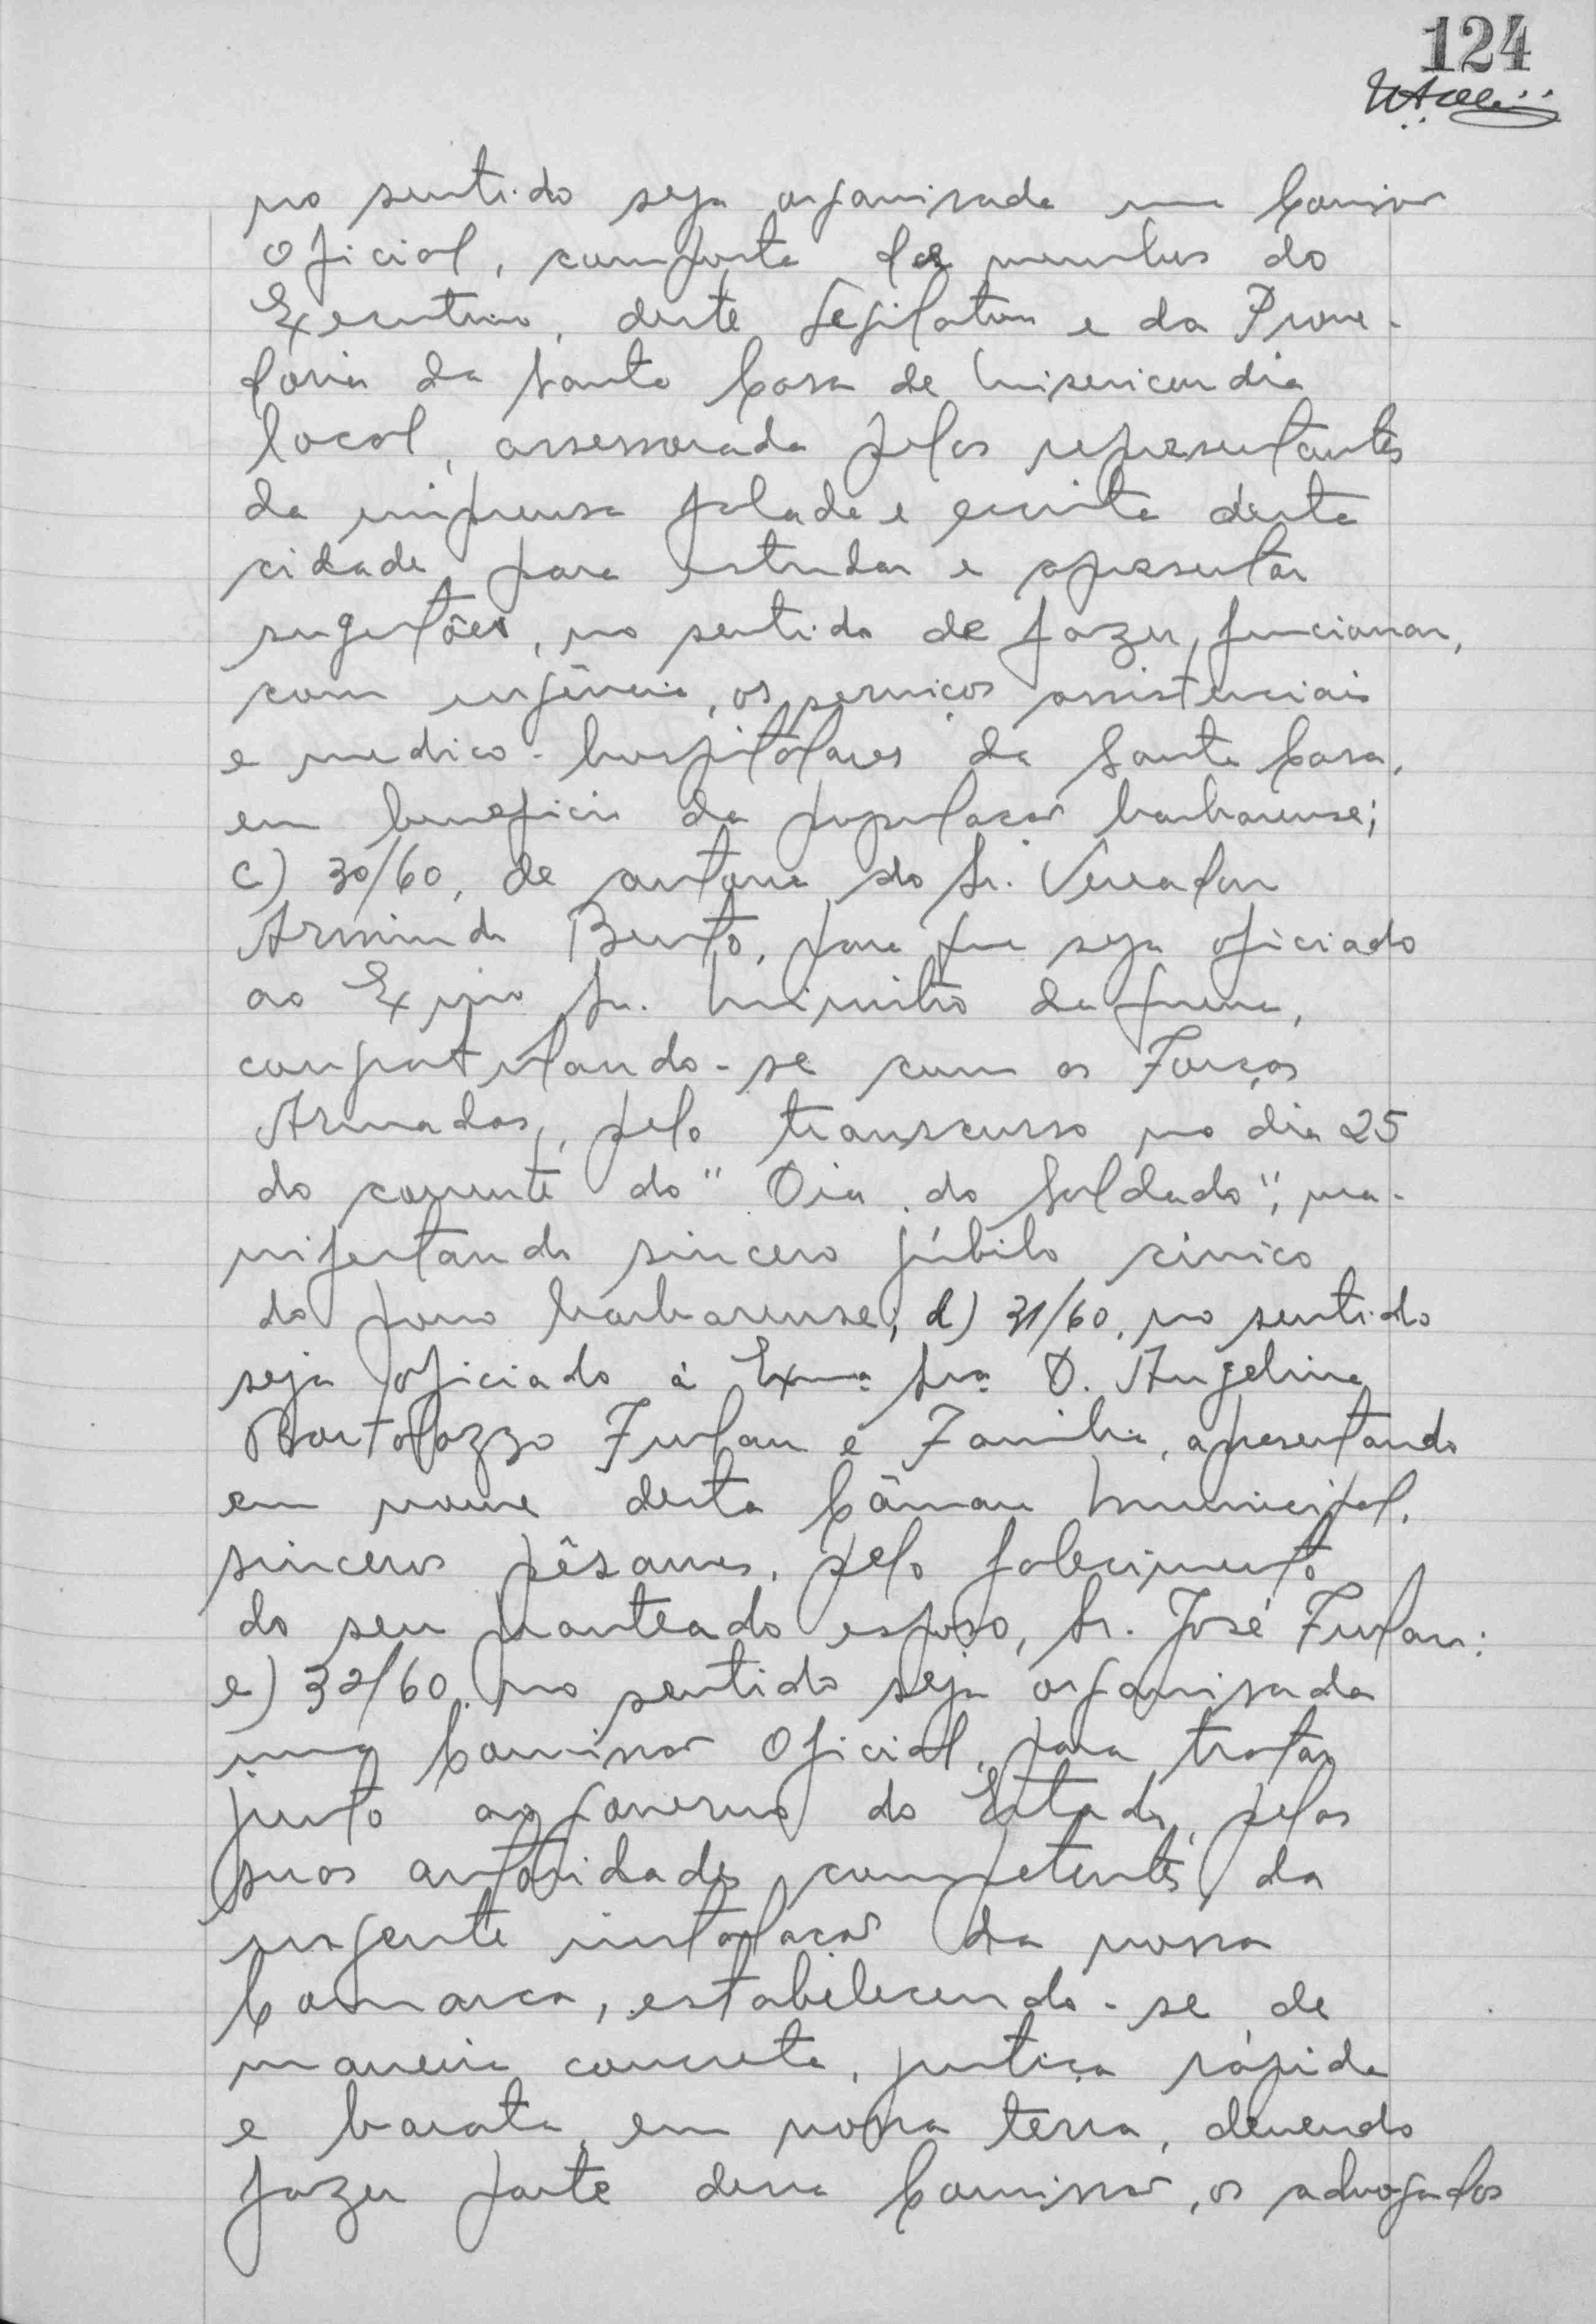 124
no sentido seja organisada uma Comissão
Oficial, composta dos membros do
Executivo, deste Legislativo e da Prove-
doria da Santa Casa de Misericordia
local, assessorada pelos representantes
da imprensa falada e escrita desta
cidade para estudar e apresentar
sugestões, no sentido de fazer funcionar,
com urgência, os serviços assistenciais
e medico-hospitalares da Santa Casa,
em beneficio da população barbarense;
c) 30/60, de autoria do Sr. Vereador
Armindo Bento, para que seja oficiado
ao Exmo Sr. Ministro da Guerra,
congratulando-se com as Forças
Armadas, pelo transcurso no dia 25
do corrente do "Dia do Soldado", ma-
nifestando sincero júbilo cívico
do povo barbarense; d) 31/60, no sentido
seja oficiado à Exma. Sra. D. Angelina
Bortolazzo Furlan e Familia, apresentando
em nome desta Câmara Municipal,
sinceros pêsames, pelo falecimento
do seu pranteado esposo, Sr. José Furlan:
e) 32/60, no sentido seja organisada
uma Comissão Oficial, para tratar
junto ao Governo do Estado, pelas
suas autoridades competentes, da
urgente instalação da nossa
Comarca, estabelecendo-se de
maneira concreta, justiça rápida
e barata, em nossa terra, devendo
fazer parte dessa Comissão, os advogados